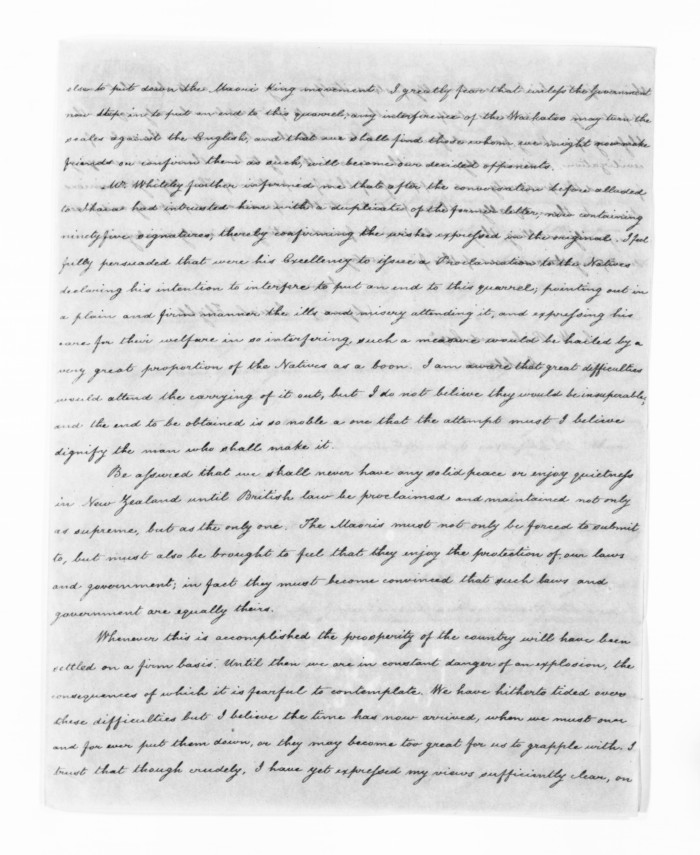 also to put down the Maori King movement. I greatly fear that unless the Government
now steps in to put an end to this quarrel, any interference of the Waikatos may turn the
scales against the English, and that we shall find those whom we might now make
friends or confirm them as such, will become our decided opponents.
Mr. Whiteley further informed me that after the conversation before alluded
to Ihaia had intrusted him with a duplicate of the former letter, now containing
ninety five signatures, thereby confirming the wishes expressed in the original. I feel
fully persuaded that were his Excellency to issue a Proclamation to the Natives
declaring his intention to interfere to put an end to this quarrel; pointing out in
a plain and firm manner the ills and misery attending it, and expressing his
care for their welfare in so interfering, such a measure would be hailed by a
very great proportion of the Natives as a boon. I am aware that great difficulties
would attend the carrying of it out, but I do not believe they would be insuperable,
and the end to be obtained is so noble a one that the attempt must I believe
dignify the man who shall make it.
Be assured that we shall never have any solid peace or enjoy quietness
in New Zealand until British law be proclaimed and maintained not only
as supreme, but as the only one. The Maoris must not only be forced to submit
to, but must also be brought to feel that they enjoy the protection of our laws
and government; in fact they must become convinced that such laws and
government are equally theirs.
Whenever this is accomplished the prosperity of the country will have been
settled on a firm basis. Until then we are in constant danger of an explosion, the
consequences of which it is fearful to contemplate. We have hitherto tided over
these difficulties but I believe the time has now arrived, when we must once
and for ever put them down, or they may become too great for us to grapple with. I
trust that though crudely, I have yet expressed my views sufficiently clear, on